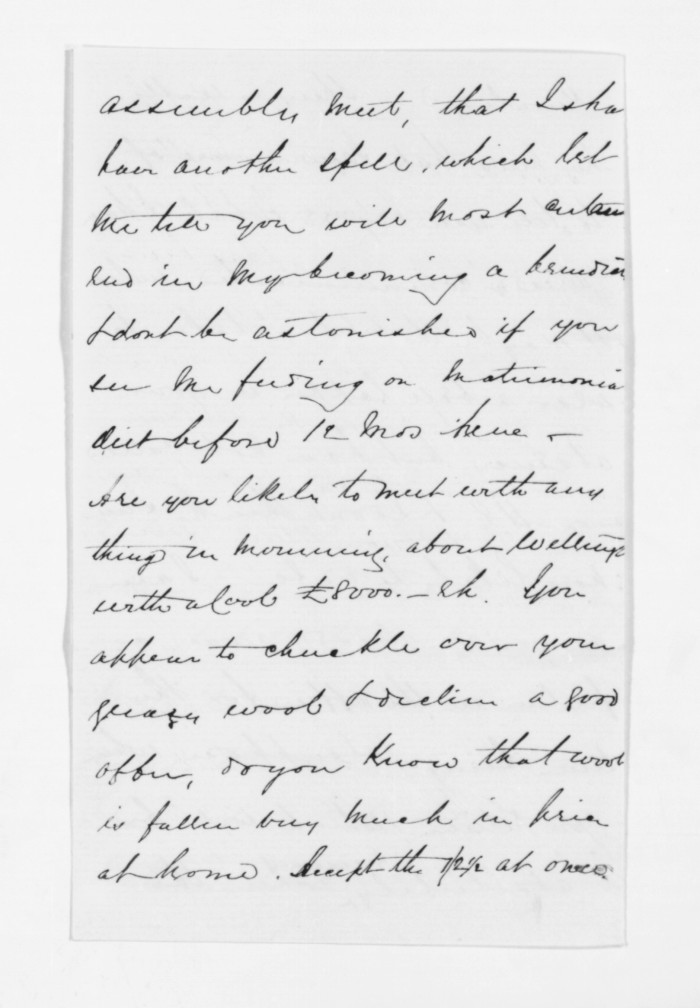 assembly meet, that I sha
have another spell, which let
me tell you will most certain
end in my becoming a benedict
& dont be astonished if you
see me feeding on matrimonia
diet before 12 Mos hence –
Are you likely to meet with any
thing in mourning, about Wellingt
with a cool £8000. – eh. You
appear to chuckle over your
greasy wool & decline a good
offer, do you know that wool
is fallen very much in price
at home. Accept the 1/2½ at once.